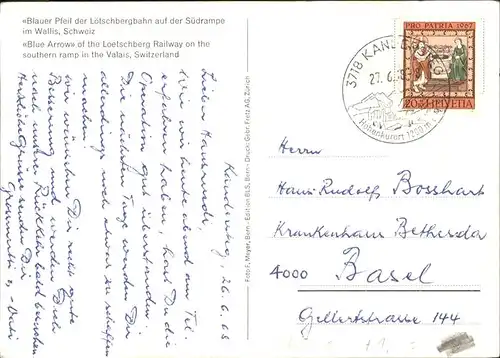 «Blauer Pfeil der Lötschbergbahn auf der Südrampe
im Wallis, Schweiz
«Blue Arrow» of the Loetschberg Railway on the
southern ramp in the Valais, Switzerland
Kandersteg, 26. 6. 68
Lieber Hansruedi,
Wie wir heute abend am Tel.
erfahren haben, hast Du die
Operation gut überstanden.
Die nächsten Tage werden Dir
allerdings noch etwas zu schaffen
machen!
Wir wünschen Dir recht gute
Besserung und werden Dich
nach unserer Rückkehr bald besuchen
Herzliche Grüsse senden Dir
Grossmutti
Foto F. Meyer, Bern - Edition BLS, Bern - Druck: Gebr. Fretz AG, Zürich
3718 KANDERSTEG
27. 6. 68
Höhenkurort 1200 m
PRO PATRIA 1967
20 HELVETIA
Herrn
Hans-Rudolf Bosshart
Krankenhaus Bethesda
4000 Basel
Gellertstrasse 144